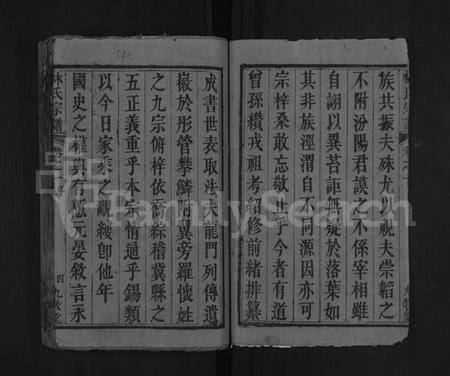 族共振夫殊尤以視夫崇韜之
不附汾陽君謨之不係宰相雖
自詡以異苔詎無疑於落葉如
其非族涇渭自不同源因亦可
宗梓桑敢忘敬止乎今者有道
曾孫纘戎祖考紹修前緒排纂
成書世表取法夫龍門列傳遺
徽於彤管攀鱗附翼旁羅懷姓
之九宗俯梓依喬綜稽冀縣之
五正義重乎本宗情逾乎錫類
以今日家乘之觀綏卽他年
國史之權輿有慙元晏敘言永
林氏宗譜
四
九教堂
FamilySearch